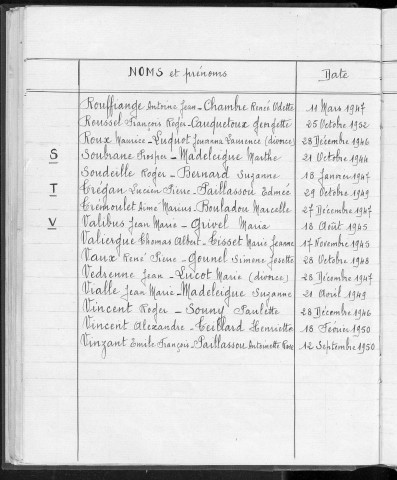 NOMS et prénoms Date
Rouffiange Antoine Jean - Chambre René Odette 11 Mars 1947
Roussel François Roger - Cauquetoux Georgette 25 Octobre 1952
Roux Maurice - Luquot Jeanna Laurence (divorce) 28 Décembre 1946
S Soubrane Prosper - Madeleigue Marthe 21 Octobre 1944
Soudeille Roger - Bernard Suzanne 18 Janvier 1947
T Trégan Lucien Pierre - Paillassou Edmée 29 Octobre 1949
Trémoulet Aimé Marius - Bouladou Marcelle 27 Décembre 1947
V Valibus Jean Marie - Grivel Maria 18 Août 1945
Valiergue Thomas Albert - Tisset Marie Jeanne 17 Novembre 1945
Vaux René Pierre - Gounel Simone Josette 28 Octobre 1948
Vedrenne Jean - Lucot Marie (divorce) 28 Décembre 1947
Vialle Jean Marie - Madeleigue Suzanne 21 Avril 1949
Vincent Roger - Sonny Paulette 28 Décembre 1946
Vincent Alexandre - Teillard Henriette 18 Février 1950
Vinzant Emile François - Paillassou Antoinette Rose 12 Septembre 1950